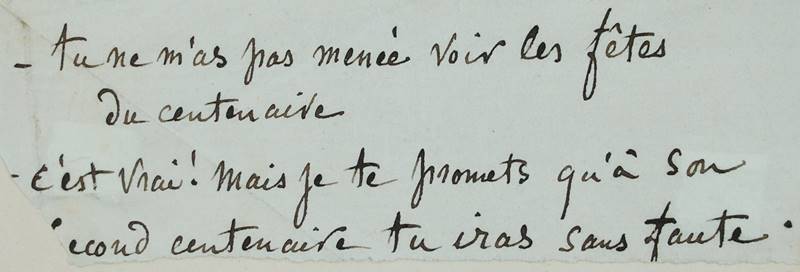 - tu ne m'as pas menée voir les fêtes
du centenaire
- c'est vrai! Mais je te promets qu'à son
second centenaire tu iras sans faute.